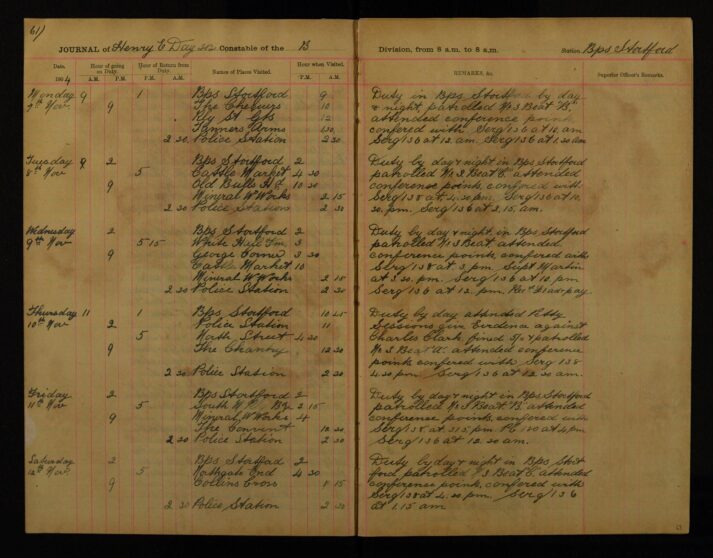 61)
JOURNAL of Henry E Day 212 Constable of the B Division, from 8 a.m. to 8 a.m. Station, Bps Stortford
Date. Hour of going on Duty. Hour of Return from Duty. Names of Places Visited. Hour when Visited. REMARKS, &c. Superior Officer's Remarks.
1904 A.M. P.M. P.M. A.M. P.M. A.M.
Monday 9 1 Bps Stortford 9
7th Nov 9 The Chequers 10
Rly St 12
Tanners Arms 1 30
2 30 Police Station 2 30
Duty in Bps Stortford by day
& night, patrolled No 3 Beat "B"
attended conference point
confered with Serg 136 at 10. am
Serg 136 at 12. am Serg 136 at 1.30 am
Tuesday 9 2 Bps Stortford 2
8th Nov 5 Cattle Market 4 30
9 Old Bulls Hd 10 30
Mineral W Works 2 15
2 30 Police Station 2 30
Duty by day & night in Bps Stortford
patrolled No 3 Beat C attended
conference points, confered with
Serg 138 at 4.30 pm. Serg 136 at 10.
30. pm. Serg 136 at 2.15. am.
Wednesday 2 Bps Stortford 2
9th Nov 5 15 White Hill Fm 3
9 George Corner 3 30
Cattle Market 10
Mineral W Works 2 15
2 30 Police Station 2 30
Duty by day & night, in Bps Stortford
patrolled No 3 Beat attended
conference points, confered with
Serg 138 at 3 pm. Supt Martin
at 3.30. pm. Serg 136 at 10 pm
Serg 136 at 12. pm. Recd pay.
Thursday 11 1 Bps Stortford 10 45
10th Nov 2 Police Station 11
5 North Street 4 30
9 The Chantry 12 30
2 30 Police Station 2 30
Duty by day attended Petty
Sessions give Evidence against
Charles Clark fined 5/- & patrolled
No 3 Beat "A". attended conference
points confered with Serg 138
4.30 pm. Serg 136 at 12.30 am.
Friday 2 Bps Stortford 2
11th Nov 5 South 3 15
9 Mineral W Works 4
The Convent 12 30
2 30 Police Station 2 30
Duty by day & night in Bps Stortford
patrolled No 3 Beat "B" attended
conference points, confered with
Serg 138 at 3.15 pm. Pc at 4 pm
Serg 136 at 12. 30 am.
Saturday 2 Bps Stortford 2
12th Nov 5 Northgate End 4 30
9 Collins Cross 8 15
2 30 Police Station 2 30
Duty by day & night in Bps Stort
ford patrolled 3 Beat C. attended
conference point, confered with
Serg 138 at 4.30 pm. Serg 136
at 1.15 am